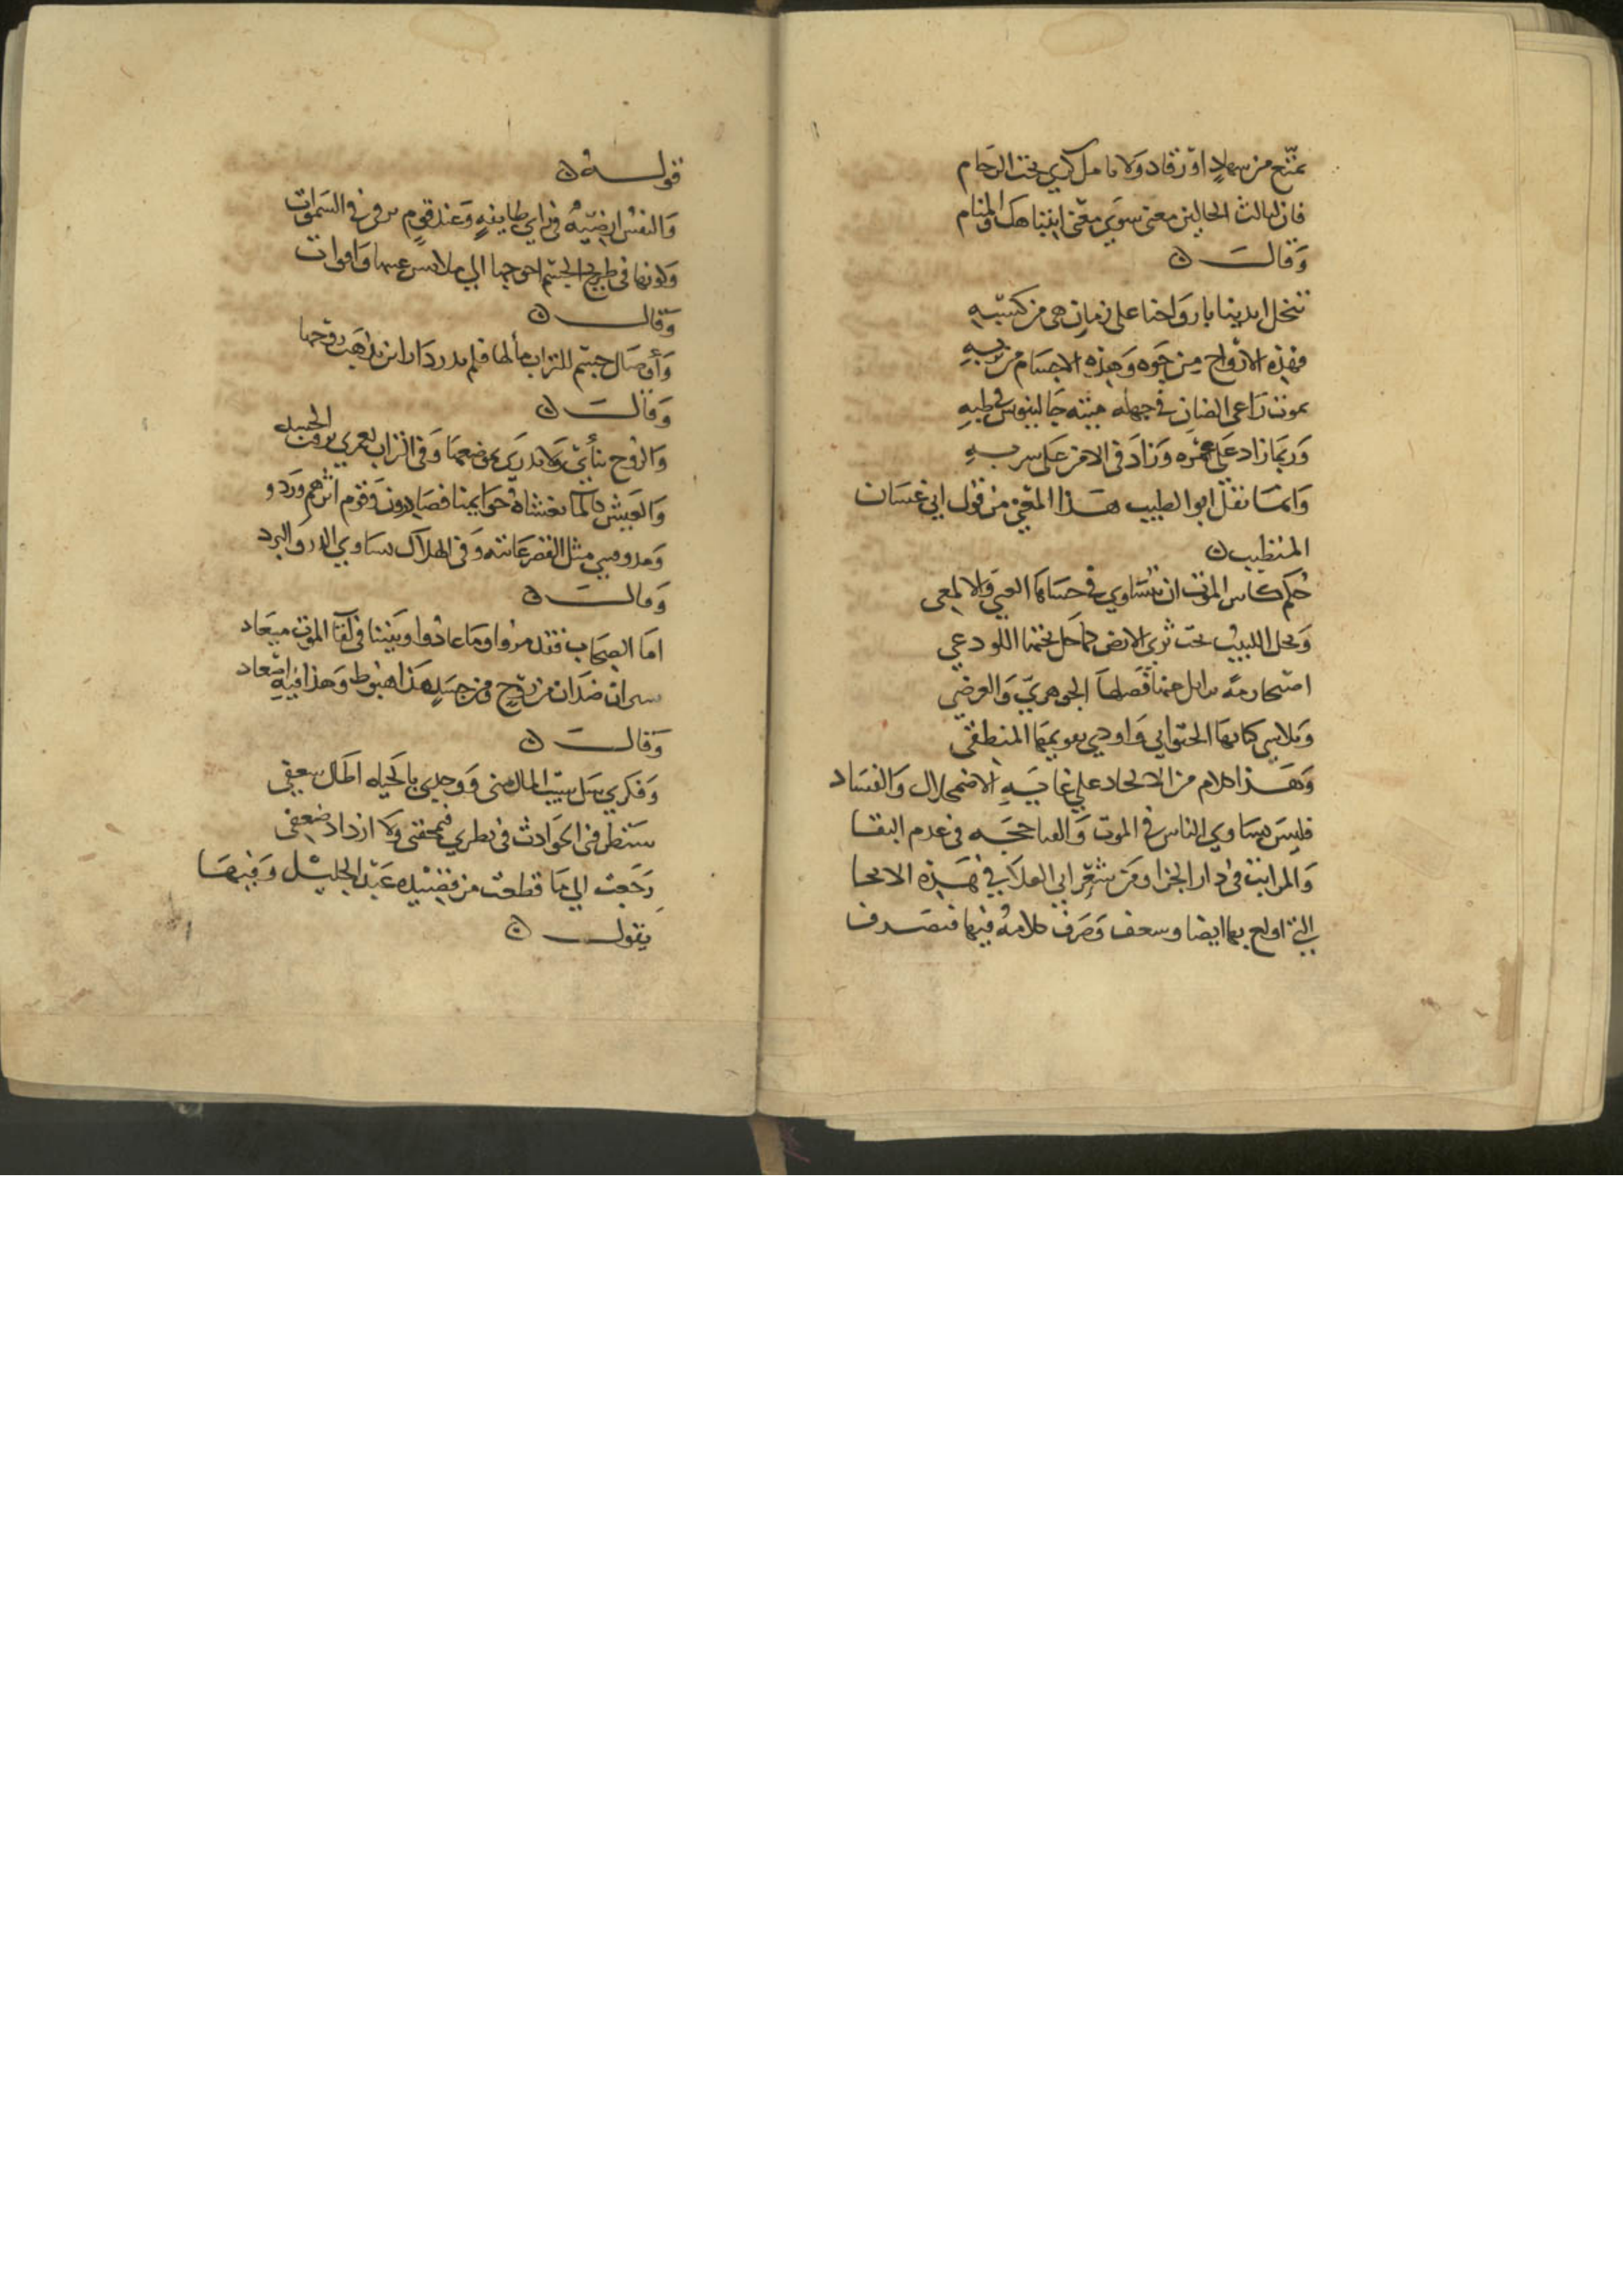 تمتّع من سهاد او رقاد ولا تامل كري تحت الرجام
فان لثالث الحالين معنى سوى معنى انتباهك والمنام
وقال
تبخل ايدينا باروَاحنا على زمان هي من كسبه
فهذه الارواح من جوه وهذه الاجسام من تربه
يموت راعى الضان في جهله ميتة جالينوس في طبه
وربما زاد على عمره وزاد في الامن على سربه
وانما نقل ابو الطيب هذا المعنى من قول ابي غسان
المتطبب
حكم كاس المنون ان يتساوي في حساها الغبي والالمعى
ويحل البليد تحت ثرى الارض كما حل تحتها اللوذعي
اصبحا رمة تزايل عنها فصلها الجوهري والعرضي
وتلاشى كيانها الحيواني واودى تقويمها المنطقى
وهذا كلام من الالحاد على غاية الاضمحلال والفساد
فليس تساوي الناس في الموت والفنا حجه في عدم البقا
والمراتب في دار الجزا ومن شعر ابي العلا في هذه الانحا
التي اولع بها ايضا وصرف كلامه فيها فتصرف
قوله
والنفس ارضيّة في راي طايفة وعند قوم ترقى في السموات
وكونها في طريح الجسم احوجها الى ملابس واقوات
وقال
وأوصال جسم للتراب مآلها فلم يدر دار اين تذهب روحها
وقال
والروح تنأى ولا يدرى بموضعها وفي التراب لعمري يرفت الجسد
والعيش كالما تغشاه حوايمنا فصادرون وقوم اثرهم وردو
وفي الهلاك تساوي الدر والبرد
وقال
اما الصحاب فقد مروا وما عادوا وبيننا في لقآ الموت ميعاد
ضدان من روح ومن جسد هذا هبوط وهذا فيه اصعاد
وقال
وفكري سل سيب المال مني ووجدي بالحياه اطال
فى الحوادث في فيمحقني ولا ازداد ضعفى
رجعت الى ما قطعت من قصيده عبد الجليل وفيها
يقول